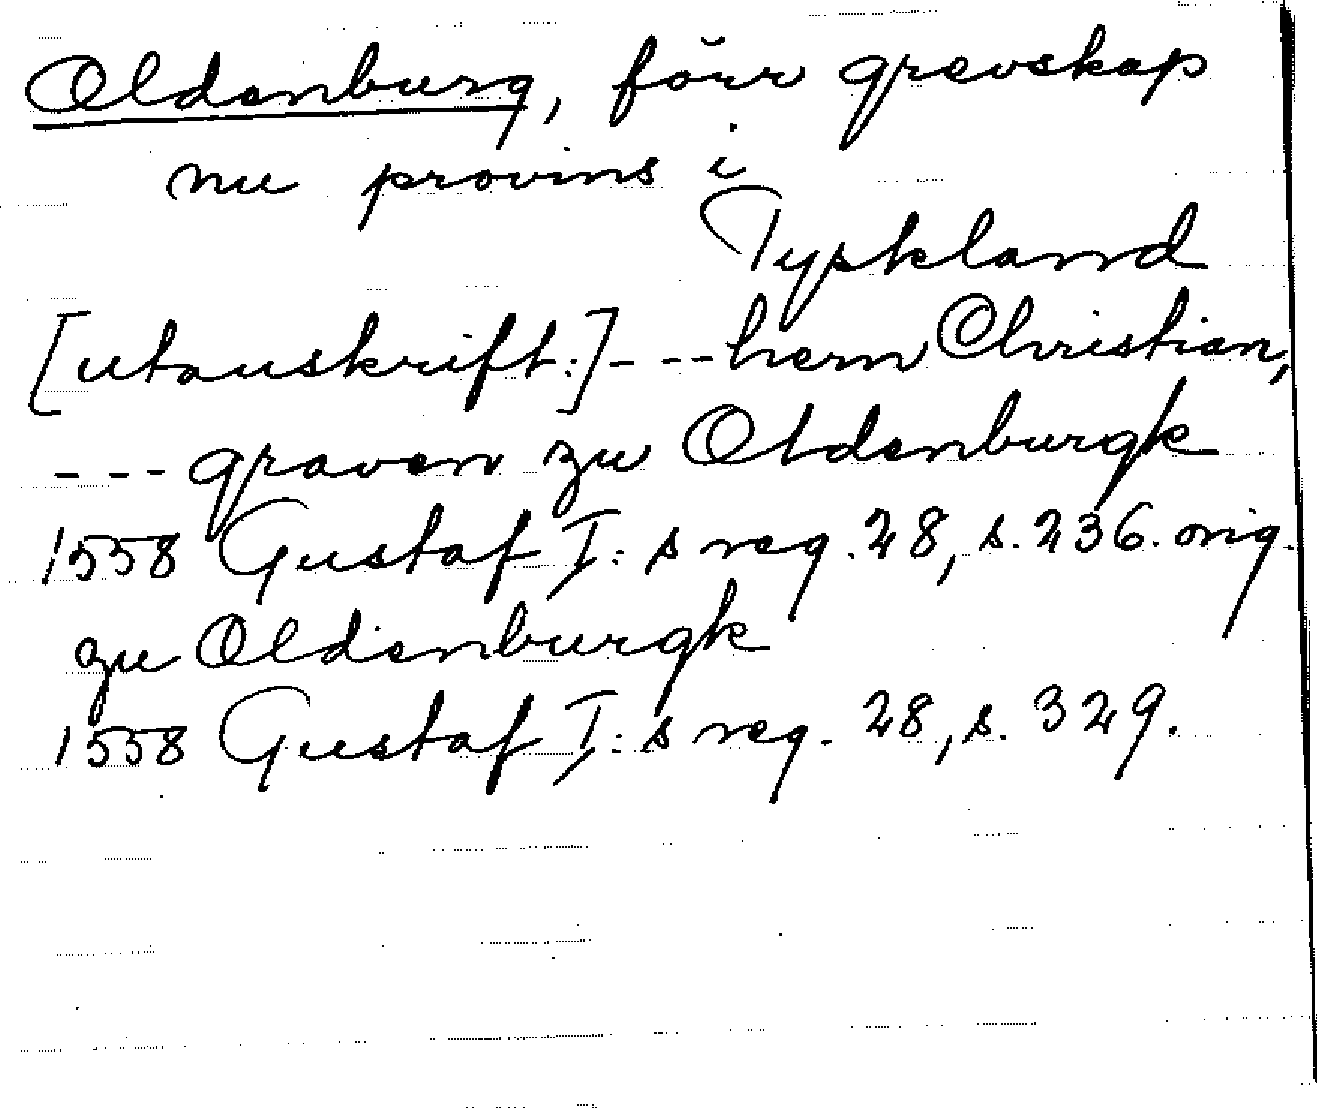 Oldenburg, förr grevskap
nu provins i
Tyskland
[utanskrift:]--- hern Christian,
--- graven zu Oldenburgk
1558 Gustaf I:s reg. 28, s. 236. orig.
zu Oldenburgk
1558 Gustaf I:s reg. 28, s. 329.